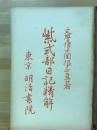 文學博士関根正直著
紫式部日記精解
東京 明治書院